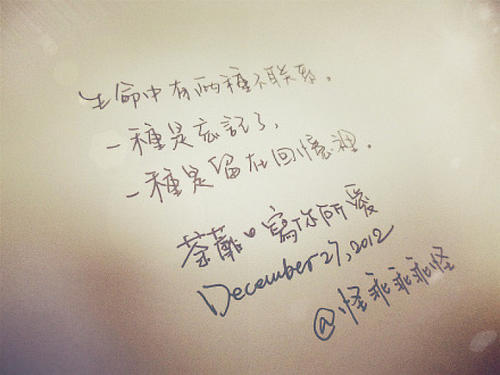 生命中有兩種不联系，
一種是忘記了，
一種是留在回憶裡。
荼蘼。寫你所愛
December 27, 2012
@怪乖乖乖怪